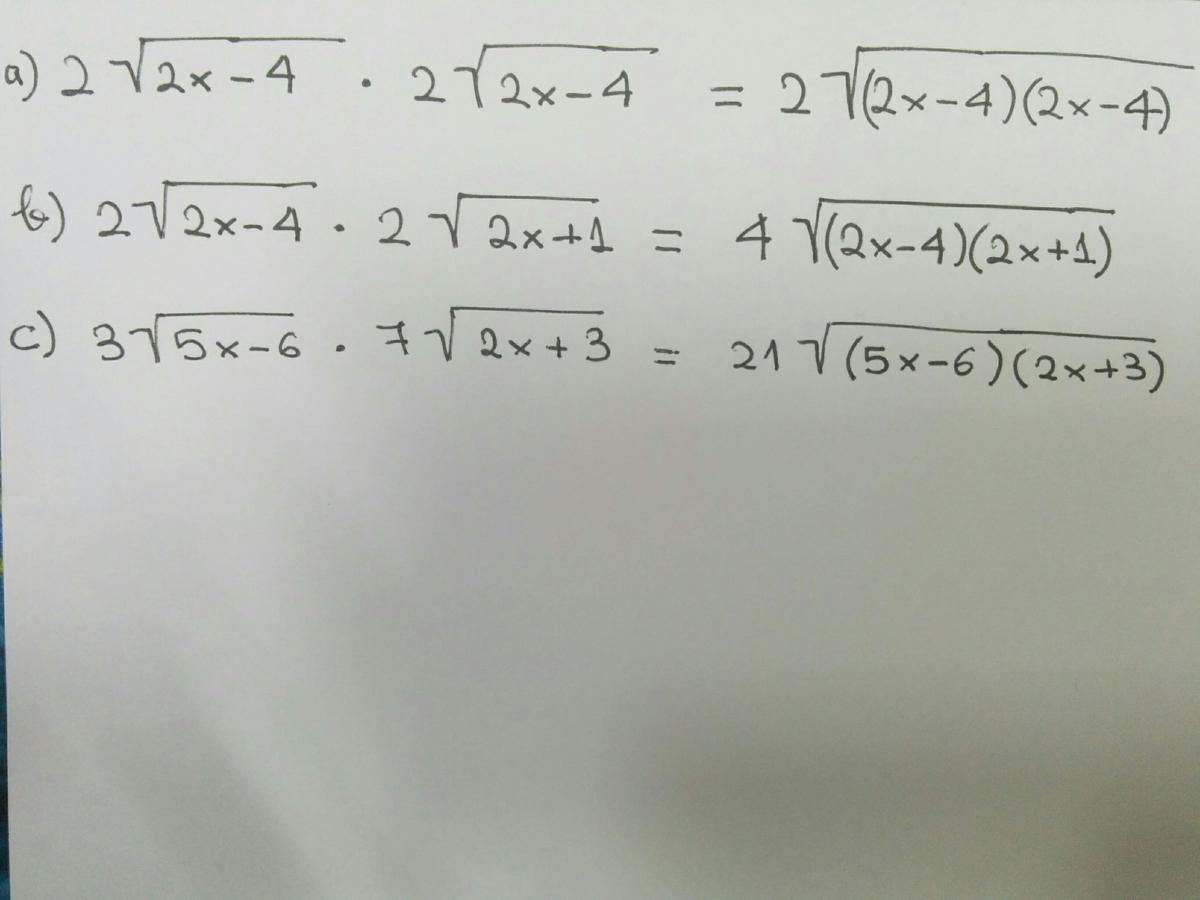 a) 2√(2x-4) · 2√(2x-4) = 2√((2x-4)(2x-4))
b) 2√(2x-4) · 2√(2x+1) = 4√((2x-4)(2x+1))
c) 3√(5x-6) · 7√(2x+3) = 21√((5x-6)(2x+3))